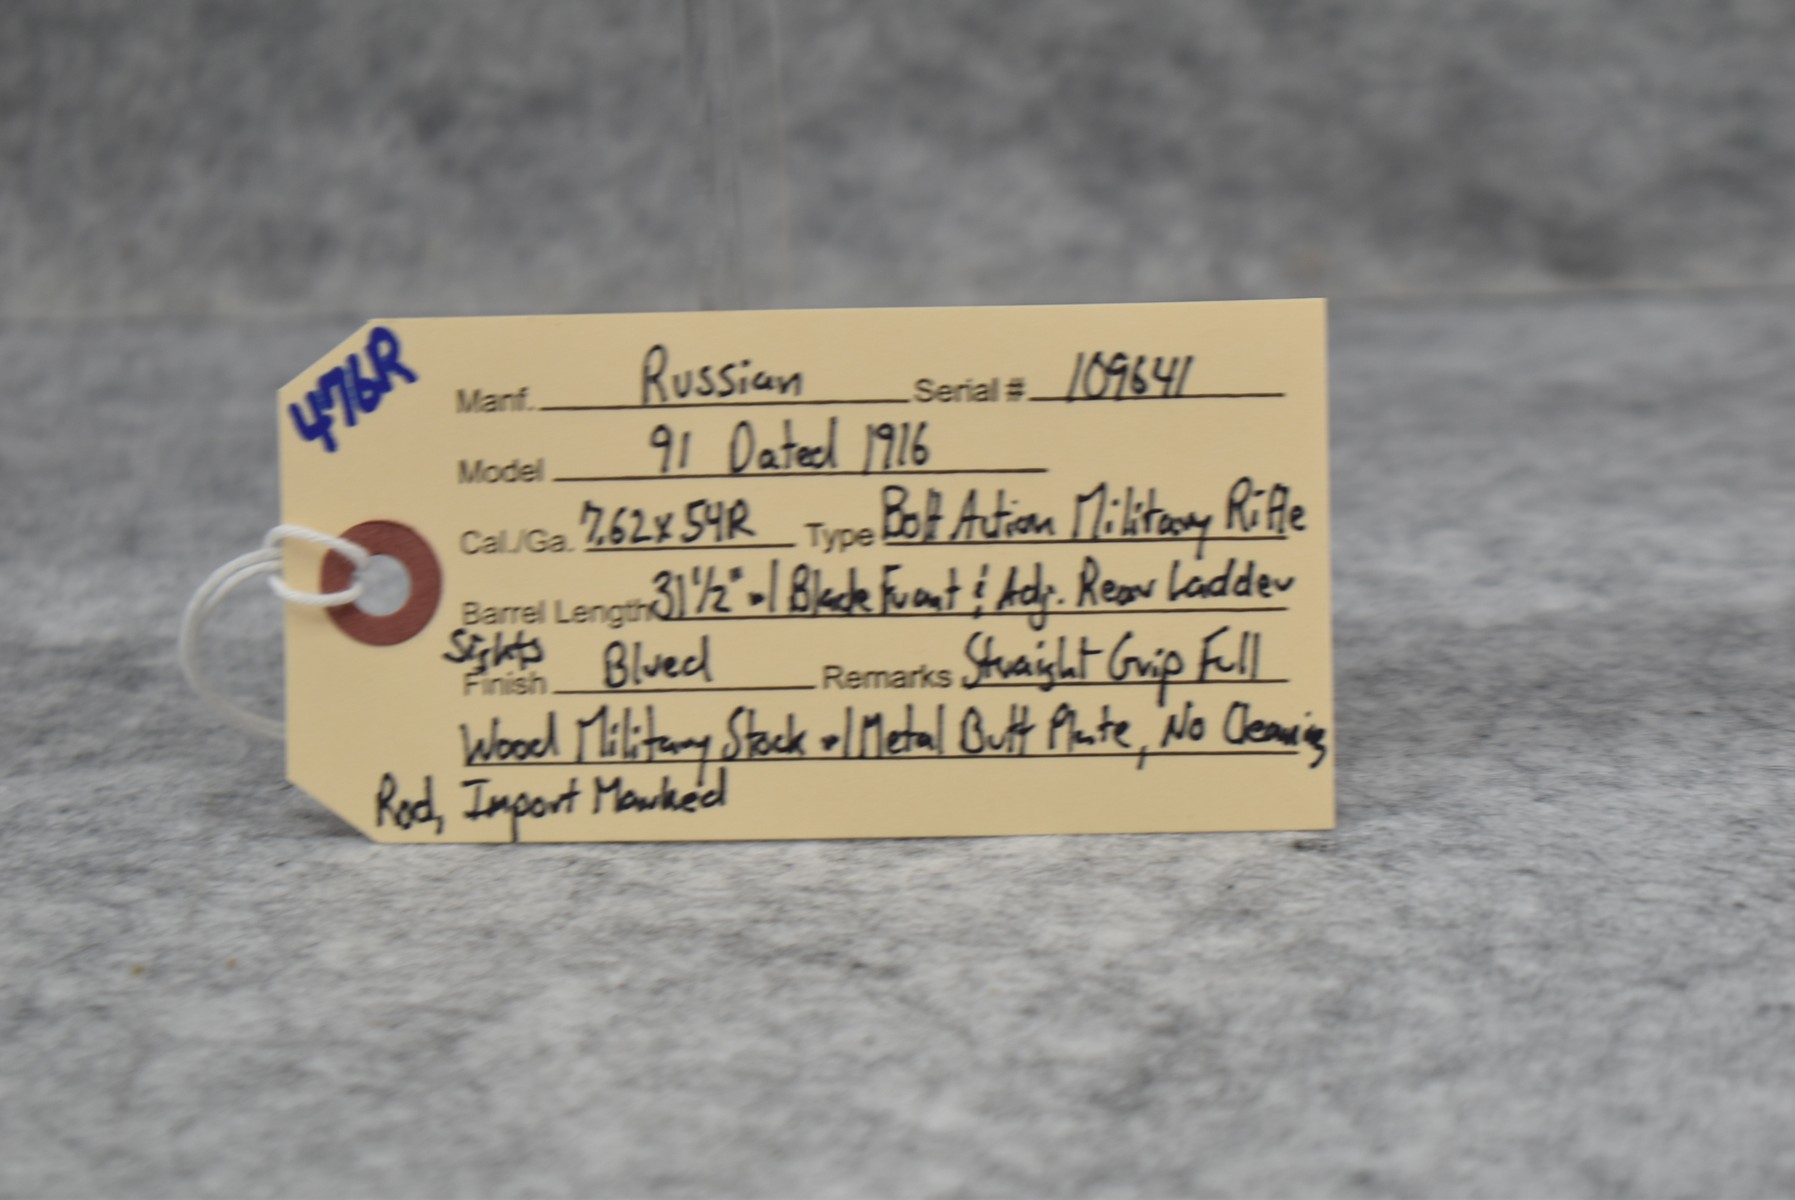 476R
Manf. Russian Serial # 109641
Model 91 Dated 1916
Cal./Ga. 7.62x54R Type Bolt Action Military Rifle
Barrel Length 31 1/2" w/ Blade Front & Adj. Rear Ladder
Sights
Finish Blued Remarks Straight Grip Full
Wood Military Stock w/ Metal Butt Plate, No Cleaning
Rod, Import Marked